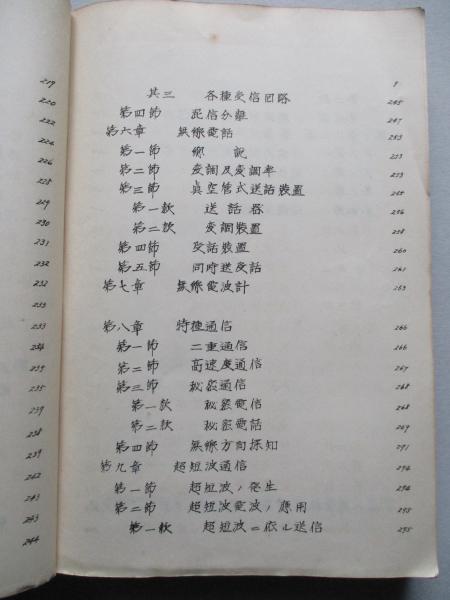 8
其三 各種受信回路 245
第四節 混信分離 247
第六章 無線電話 253
第一節 總説 253
第二節 変調及変調率 253
第三節 真空管式送話装置 255
第一款 送話器 256
第二款 変調装置 258
第四節 受話装置 260
第五節 同時送受話 261
第七章 無線電波計 263
第八章 特種通信 266
第一節 二重通信 266
第二節 高速度通信 267
第三節 秘密通信 268
第一款 秘密電信 268
第二款 秘密電話 269
第四節 無線方向探知 271
第九章 超短波通信 294
第一節 超短波ノ発生 294
第二節 超短波電波ノ應用 295
第一款 超短波ニ依ル送信 295
219
220
222
224
226
228
229
230
231
232
232
233
233
234
234
235
239
238
239
242
243
243
244